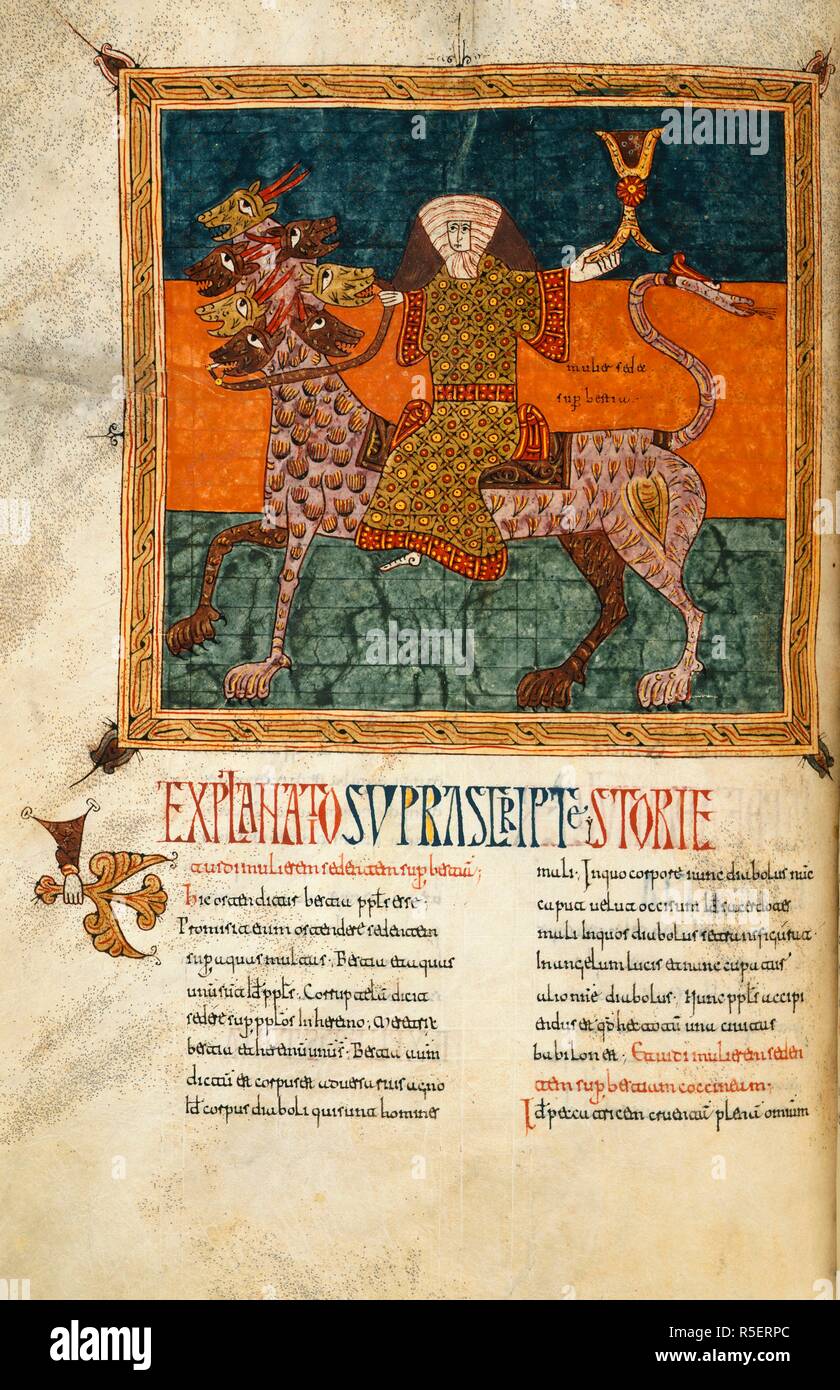 mulier sede
sup bestiu
EXPLANATIO SUPRASCRIPTE STORIE
Et uidi mulierem sedentem sup bestiu
hic ostendit bestiu ppls esse
Promisit enim ostendere sedentem
sup aquas multas. Bestiu et aquis
unum sunt Id ppls. Corruptelam dicit
sedere sup pplos In heremo. Meretrix
bestia et heremus unus. Bestia autem
dictum est corpus et aduersarius agno
Id corpus diaboli quis unt homines
muli. In quo corpore nunc diabolus nunc
caput uelut occisum Id sacerdotes
muli In quos diabolus se transfigurat
In angelum lucis et nunc cupatus
alio mie diabolus. Nunc ppls accipi
endus et quod hec totum una ciuitas
babilon est. Et uidi mulierem seden
tem sup bestiam coccineam
Id peccatricem cruentam plena omnium
alamy
Image ID: R5ERPC
www.alamy.com